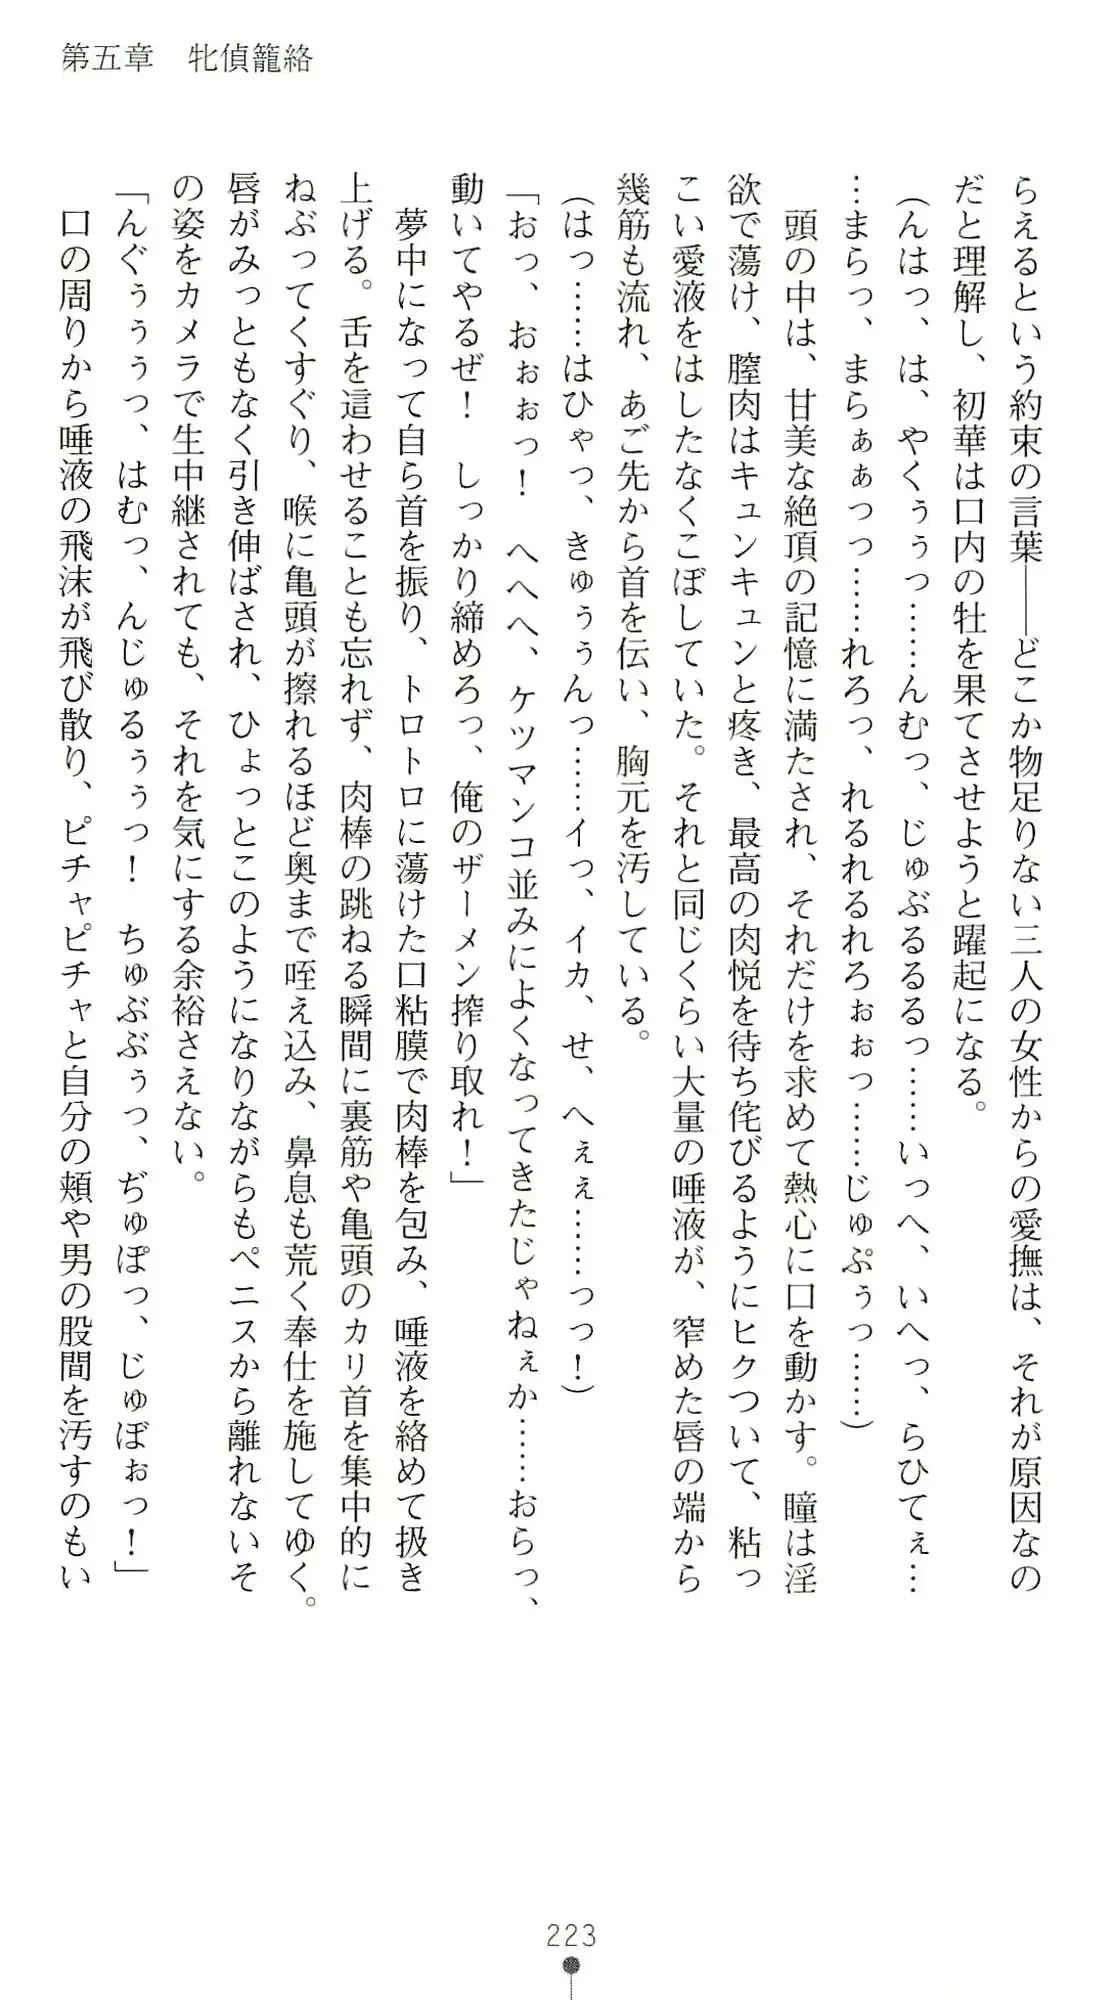 第五章　牝偵籠絡
らえるという約束の言葉――どこか物足りない三人の女性からの愛撫は、それが原因なの
だと理解し、初華は口内の牡を果てさせようと躍起になる。
（んはっ、は、やくぅぅっ……んむっ、じゅぶるるるっ……いっへ、いへっ、らひてぇ…
…まらっ、まらぁぁっっ……れろっ、れるれるれろぉぉっ……じゅぷぅっ……）
　頭の中は、甘美な絶頂の記憶に満たされ、それだけを求めて熱心に口を動かす。瞳は淫
欲で蕩け、膣肉はキュンキュンと疼き、最高の肉悦を待ち侘びるようにヒクついて、粘っ
こい愛液をはしたなくこぼしていた。それと同じくらい大量の唾液が、窄めた唇の端から
幾筋も流れ、あご先から首を伝い、胸元を汚している。
（はっ……はひゃっ、きゅぅぅんっ……イっ、イカ、せ、へぇぇ……っっ！）
「おっ、おぉぉっ！　へへへ、ケツマンコ並みによくなってきたじゃねぇか……おらっ、
動いてやるぜ！　しっかり締めろっ、俺のザーメン搾り取れ！」
　夢中になって自ら首を振り、トロトロに蕩けた口粘膜で肉棒を包み、唾液を絡めて扱き
上げる。舌を這わせることも忘れず、肉棒の跳ねる瞬間に裏筋や亀頭のカリ首を集中的に
ねぶってくすぐり、喉に亀頭が擦れるほど奥まで咥え込み、鼻息も荒く奉仕を施してゆく。
唇がみっともなく引き伸ばされ、ひょっとこのようになりながらもペニスから離れないそ
の姿をカメラで生中継されても、それを気にする余裕さえない。
「んぐぅぅぅっ、はむっ、んじゅるぅぅっ！　ちゅぶぶぅっ、ぢゅぽっ、じゅぼぉっ！」
　口の周りから唾液の飛沫が飛び散り、ピチャピチャと自分の頬や男の股間を汚すのもい
223